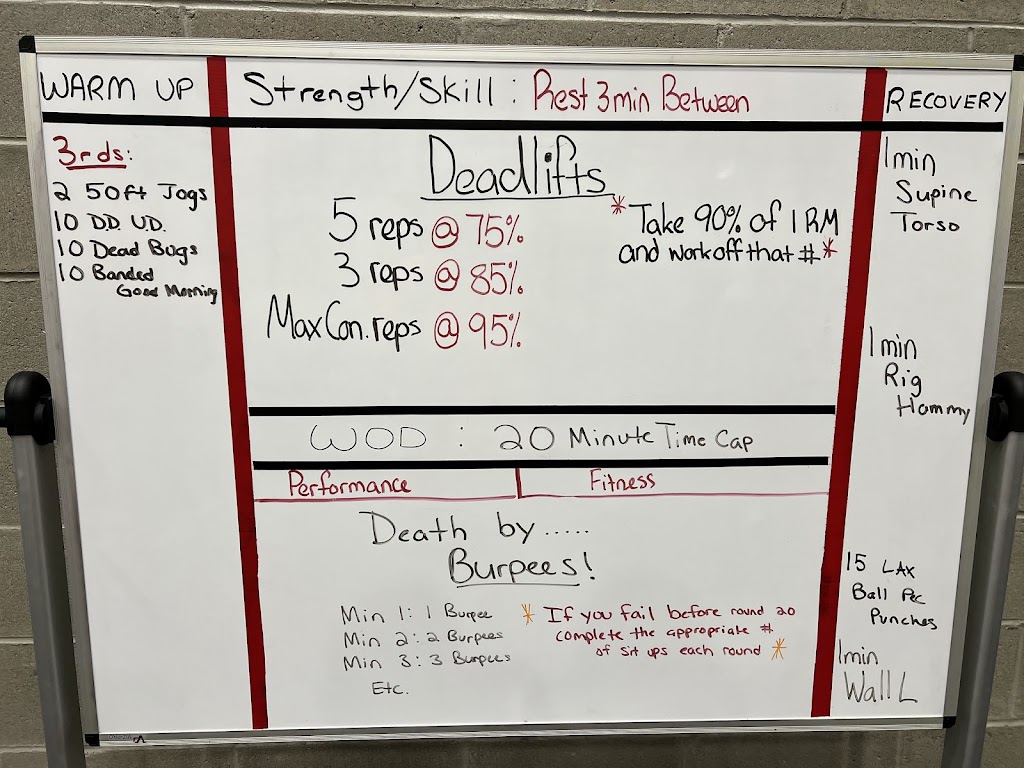 WARM UP
3rds:
2 50ft Jogs
10 D.D. U.D.
10 Dead Bugs
10 Banded
Good Morning
Strength/Skill : Rest 3min Between
Deadlifts
5 reps @ 75%
3 reps @ 85%
Max Con. reps @ 95%
*Take 90% of 1RM
and work off that #*
WOD : 20 Minute Time Cap
Performance
Fitness
Death by .....
Burpees!
Min 1: 1 Burpee
Min 2: 2 Burpees
Min 3: 3 Burpees
Etc.
* If you fail before round 20
complete the appropriate #
of sit ups each round *
RECOVERY
1min
Supine
Torso
1min
Rig
Hammy
15 LAX
Ball Pec
Punches
1min
Wall L